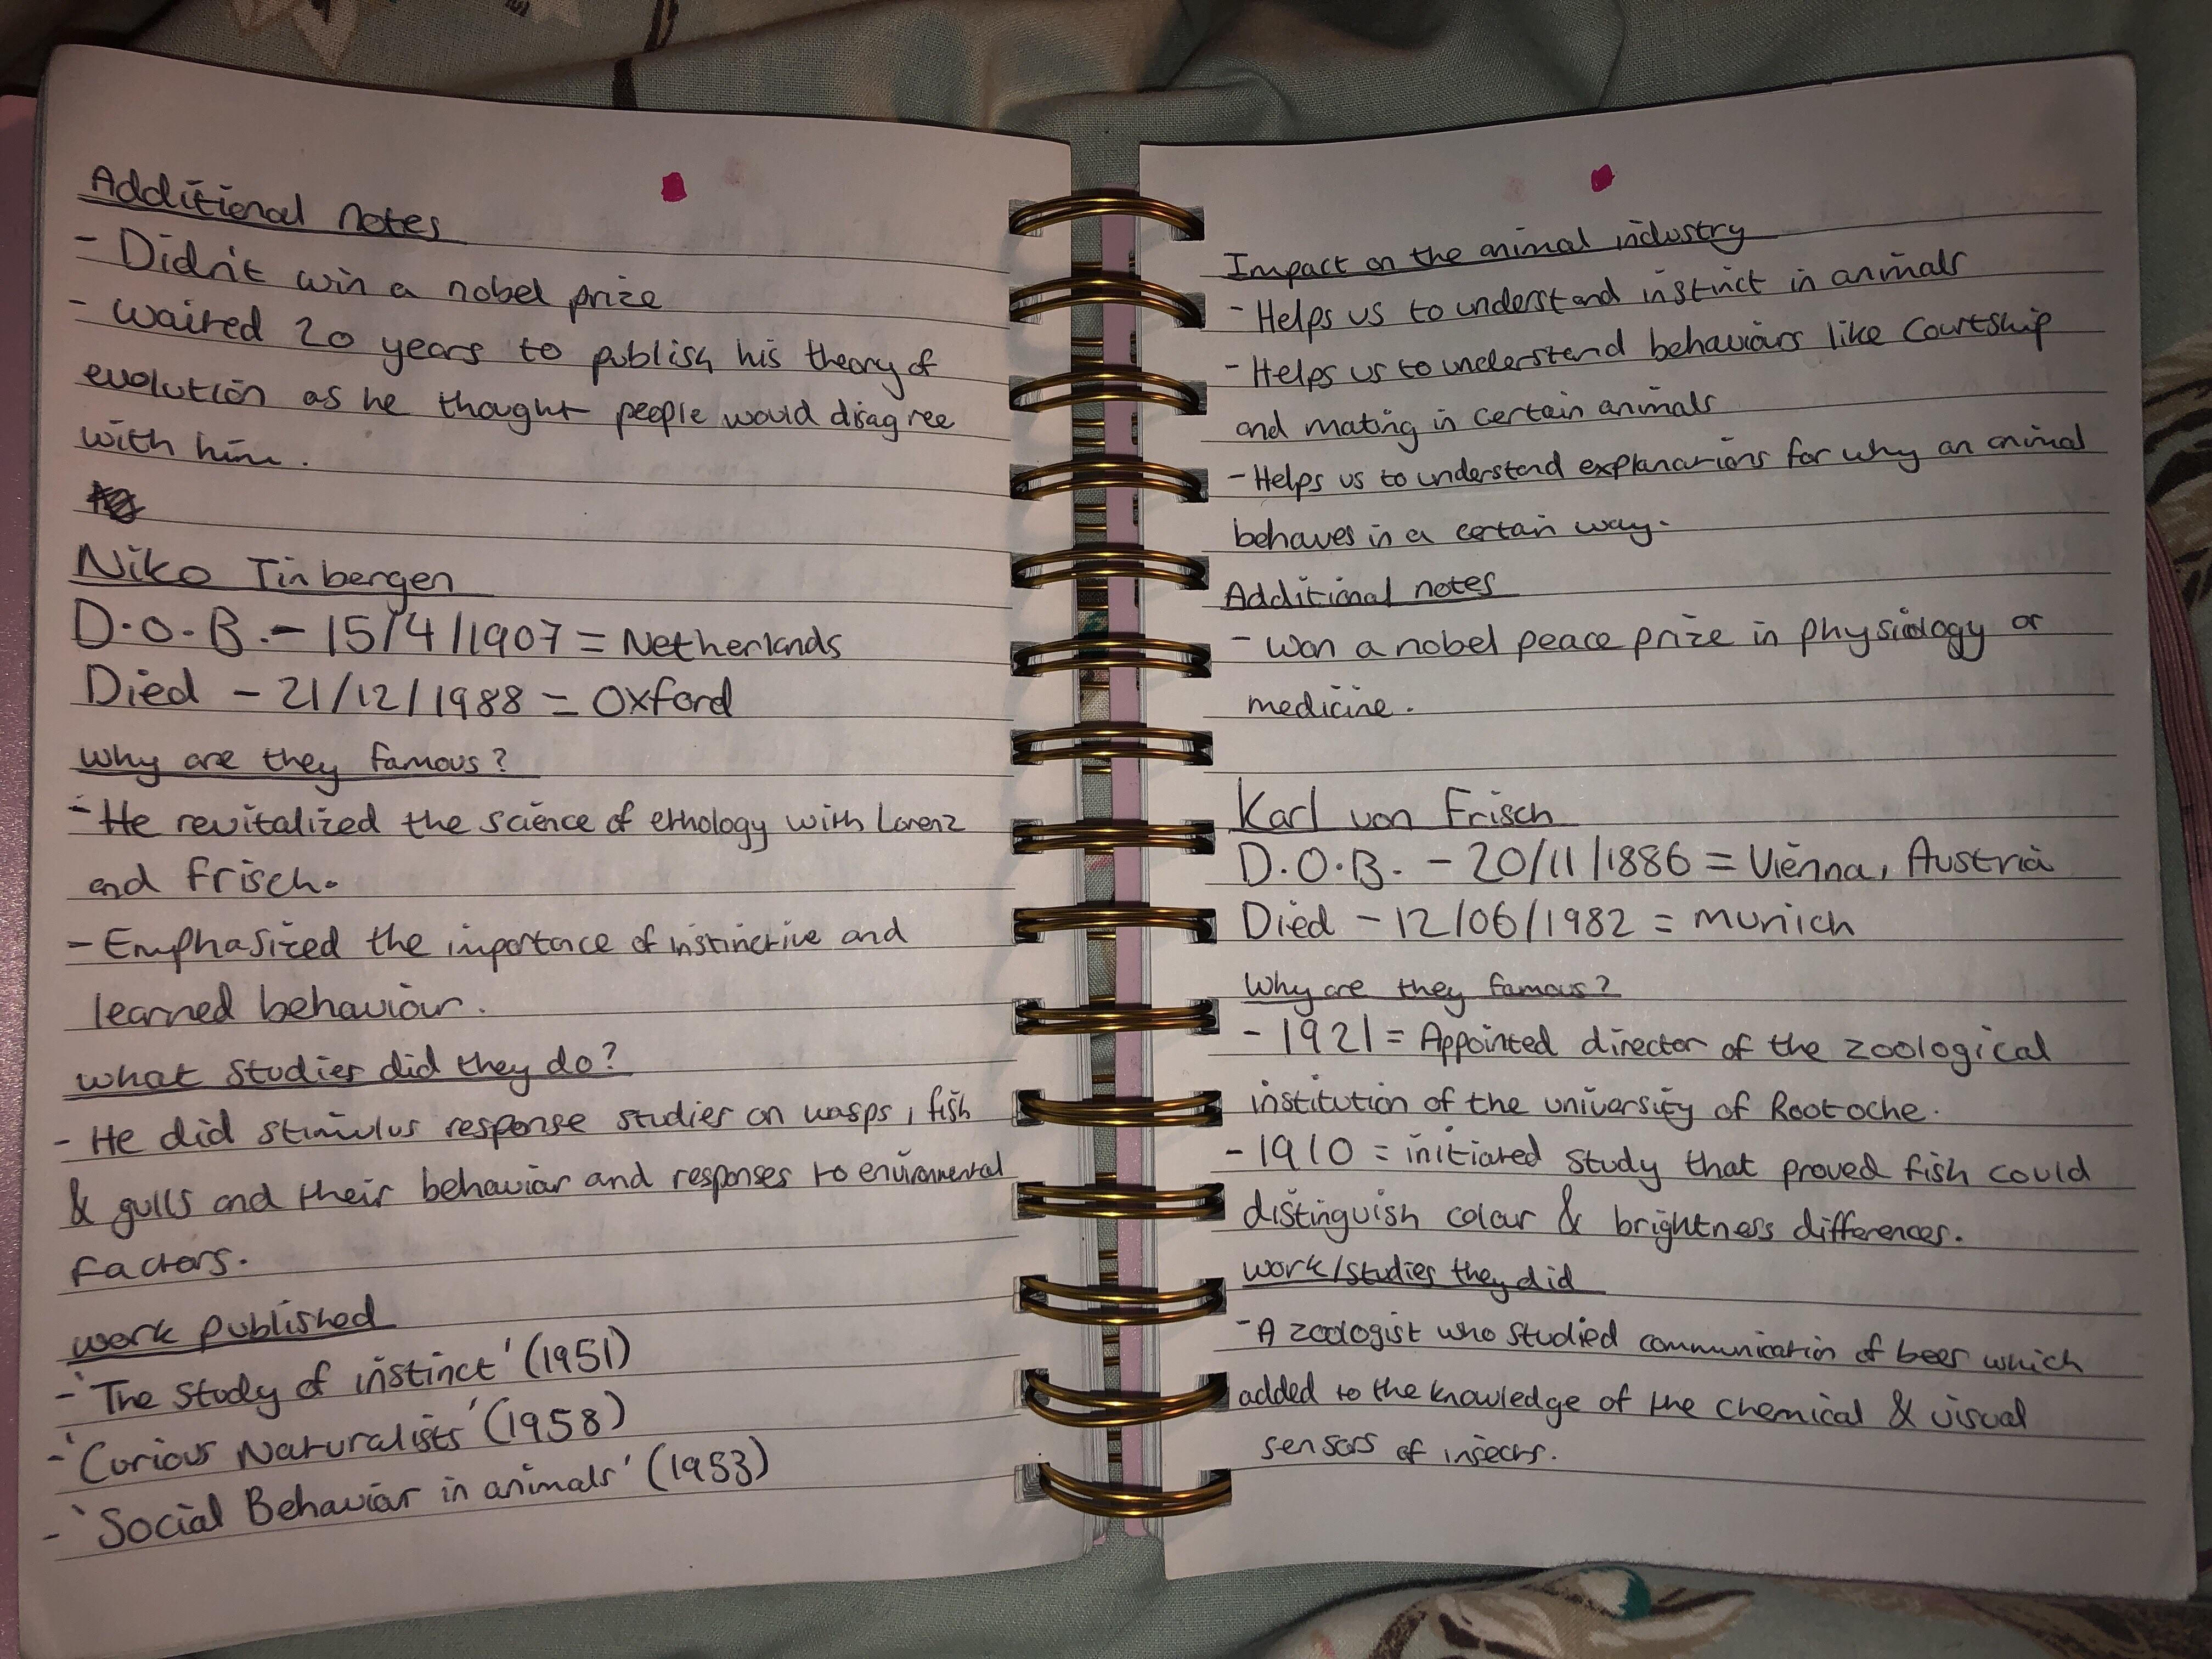 Additional notes
- Didn't win a nobel prize
- waited 20 years to publish his theory of
evolution as he thought people would disagree
with him.
Niko Tinbergen
D.O.B. - 15/4/1907 = Netherlands
Died - 21/12/1988 = Oxford
Why are they famous?
- He revitalized the science of ethology with Lorenz
and Frisch.
- Emphasized the importance of instinctive and
learned behaviour.
what studies did they do?
- He did stimulus response studies on wasps, fish
& gulls and their behaviour and responses to environmental
factors.
work published
- 'The study of instinct' (1951)
- 'Curious Naturalists' (1958)
- 'Social Behaviour in animals' (1953)
Impact on the animal industry
- Helps us to understand instinct in animals
- Helps us to understand behaviours like courtship
and mating in certain animals
- Helps us to understand explanations for why an animal
behaves in a certain way.
Additional notes
- Won a nobel peace prize in physiology or
medicine.
Karl von Frisch
D.O.B. - 20/11/1886 = Vienna, Austria
Died - 12/06/1982 = Munich
Why are they famous?
- 1921 = Appointed director of the zoological
institution of the university of Rostoche.
- 1910 = initiated study that proved fish could
distinguish colour & brightness differences.
work/studies they did
- A zoologist who studied communication of bees which
added to the knowledge of the chemical & visual
sensors of insects.